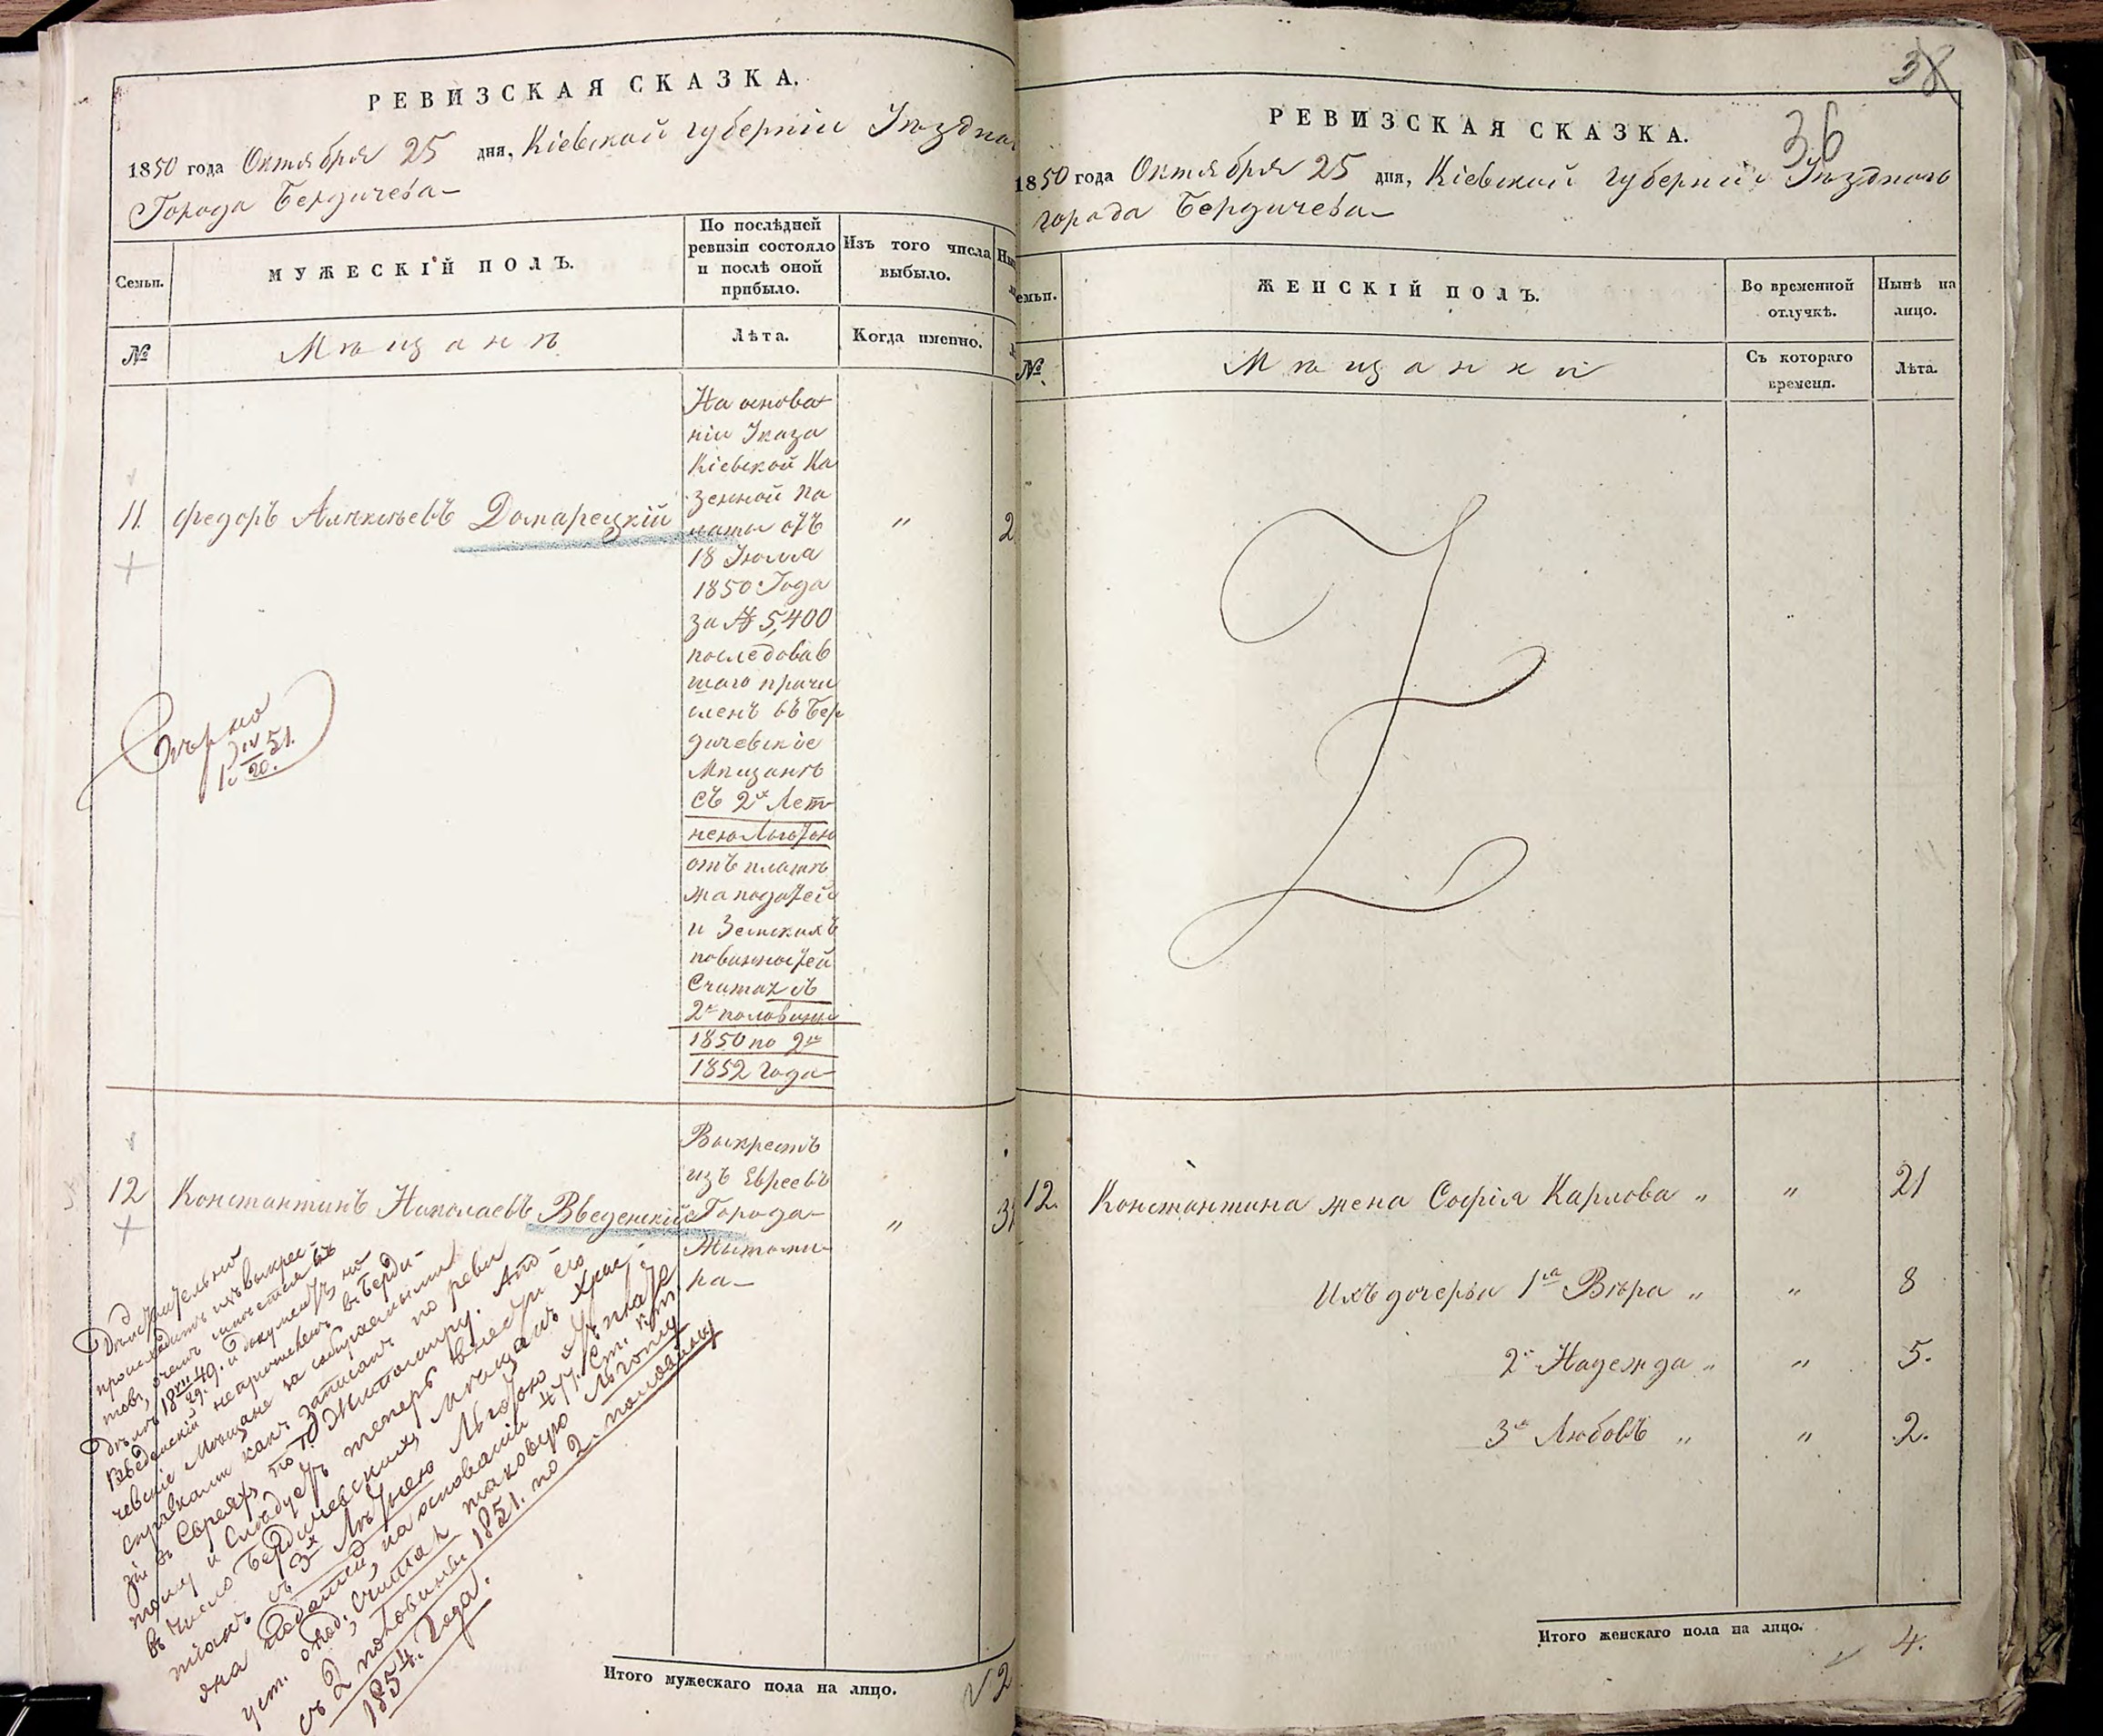 РЕВИЗСКАЯ СКАЗКА.
1850 года Октября 25 дня, Кіевской губерніи Уѣздна
Города Бердичева
Семьи.
МУЖЕСКІЙ ПОЛЪ.
По послѣдней ревизіи состояло и послѣ оной прибыло.
Изъ того числа выбыло.
№
Мѣщанъ
Лѣта.
Когда именно.
11.
Федоръ Алексѣевъ Домарецкій
На основа
ніи Указа
Кіевской Ка
зенной Па
латы отъ
18 Іюля
1850 Года
за № 5,400
последовав
шаго причи
сленъ въ Бер
дичевскіе
Мѣщанѣ
съ 2х Лет
нею Льготою
отъ платѣ
жа податей
и Земскихъ
повинностей
Считая съ
2й половины
1850 по 2ю
1852 года
"
2
Вѣрно
12
Константинъ Николаевъ Введенскій
Выкрестъ
изъ Евреевъ
Города
Житоми
ра
"
3
Дѣйствительно
происходитъ изъ выкрес-
товъ, о чемъ имѣется въ
дѣлѣ 18 VII 49. и документъ, но
29.
Введенскій непричисленъ въ Берди-
чевскіе Мѣщане за собираемыми
справками какъ записанъ по реви
зіи въ Евреяхъ по Житомиру. А по-
тому и Слѣдуетъ теперь внести его
въ число Бердичевскихъ Мѣщанъ Хрис
тіанъ съ 3х Лѣтнею Льготою
податей, на основаніи 477. ст.
уст. о под; Считая таковую Льготу
съ 2 половины 1851. по 2. половину
1854. Года.
Итого мужескаго пола на лицо.
2
38
36
РЕВИЗСКАЯ СКАЗКА.
1850 года Октября 25 дня, Кіевской губерніи Уѣзднаго
города Бердичева
емьи.
ЖЕНСКІЙ ПОЛЪ.
Во временной отлучкѣ.
Нынѣ на лицо.
№.
Мѣщанки
Съ котораго времени.
Лѣта.
12. Константина жена Софія Карлова " " 21
Ихъ дочерьи 1я Вѣра " " 8
2я Надежда " " 5.
3я Любовъ " " 2.
Итого женскаго пола на лицо. 4.